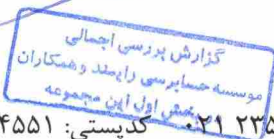 گزارش بررسی اجمالی
موسسه حسابرسی رایمند و همکاران
بخش اول این مجموعه
۰۲۱ ۲۳۸ کدپستی: ۴۵۵۱